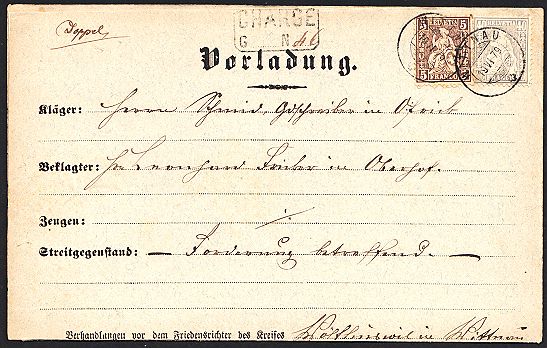 Doppel
CHARGÉ
G N 46
Vorladung.
HELVETIA
5 5
FRANCO
AU
VI 79
Kläger: Herrn Schmid, Gdschreiber in
Beklagter: Hr Leonhard in Oberhof.
Zeugen: ./.
Streitgegenstand: — Forderung betreffend. —
Verhandlungen vor dem Friedensrichter des Kreises Wölflinswil in Wittnau